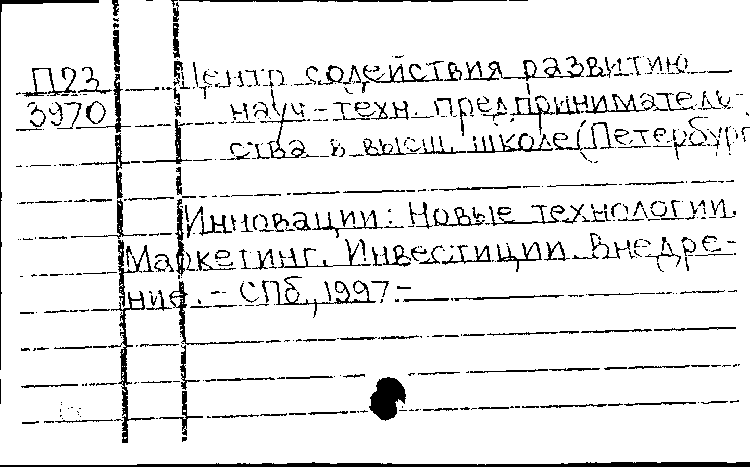 П23
3970
Центр содействия развитию
науч-техн. предприниматель-
ства в высш. школе (Петербург
Инновации: Новые технологии.
Маркетинг. Инвестиции. Внедре-
ние. - СПб, 1997.-